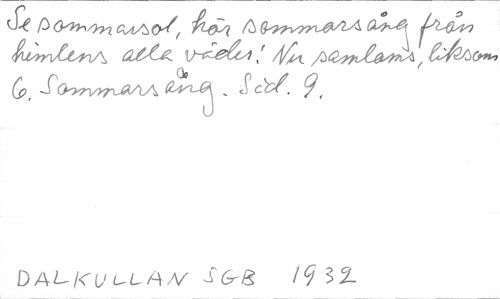 Se sommarsol, hör sommarsång från
himlens alla väder! Nu samlams, liksom
6. Sommarsång. Sid. 9.
DALKULLAN SGB 1932